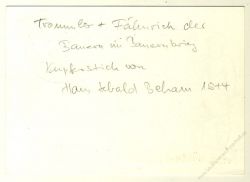 Trommler + Fähnrich der
Bauern im Bauernkrieg
Kupferstich von
Hans Sebald Beham 1544